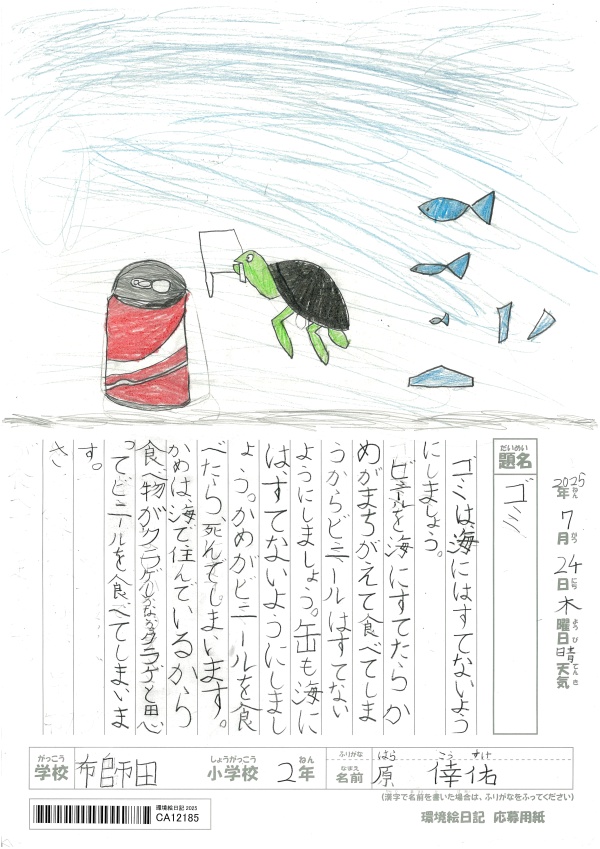 2025年7月24日木曜日晴天気
ねん がつ にち ようび てんき
だいめい
題名
ゴミ
ゴミは海にはすてないよう
にしましょう。
ビニールを海にすてたらか
めがまちがえて食べてしま
うからビニールはすてない
ようにしましょう。缶も海に
は、すてないようにしまし
ょう。かめがビニールを食
べたら死んでしまいます。
かめは海で住んでいるから
食べ物がクラゲと思
ってビニールを食べてしまいま
す。
がっこう
学校
布師田
しょうがっこう
小学校
2年
ねん
ふりがな
はら こう すけ
なまえ
名前
原 倖佑
(漢字で名前を書いた場合は、ふりがなをふってください)
環境絵日記 2025
CA12185
環境絵日記 応募用紙